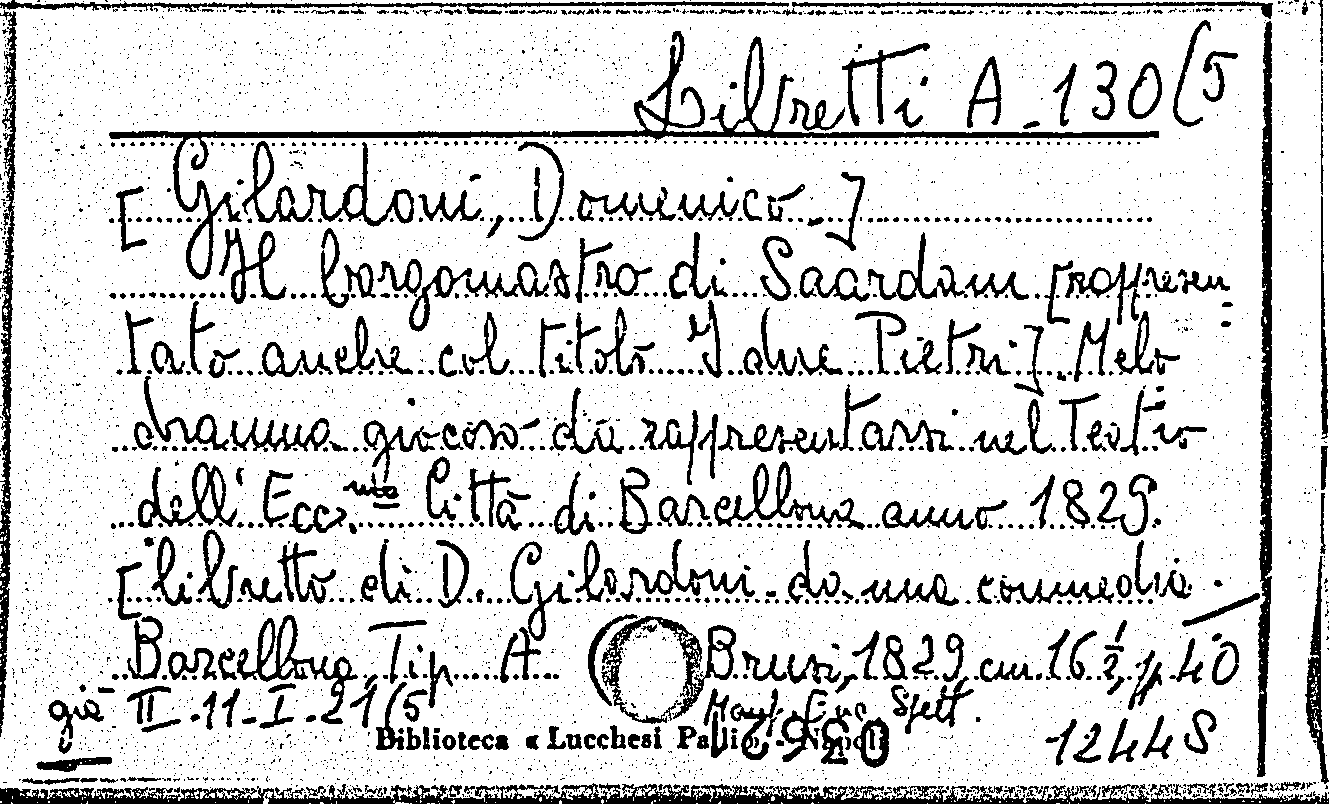 Libretti A-130(5
[Gilardoni, Domenico.]
Il borgomastro di Saardam [rappresen=
tato anche col titolo I due Pietri]. Melo=
dramma giocoso da rappresentarsi nel Teatro
dell' Ecc.ma Città di Barcellona anno 1829.
[libretto di D. Gilardoni da una commedia.
Barcellona, Tip. A. Brusi, 1829, cm 16½, pp. 40
già II-11-I-21(5
Biblioteca « Lucchesi Palli » - Napoli
12448